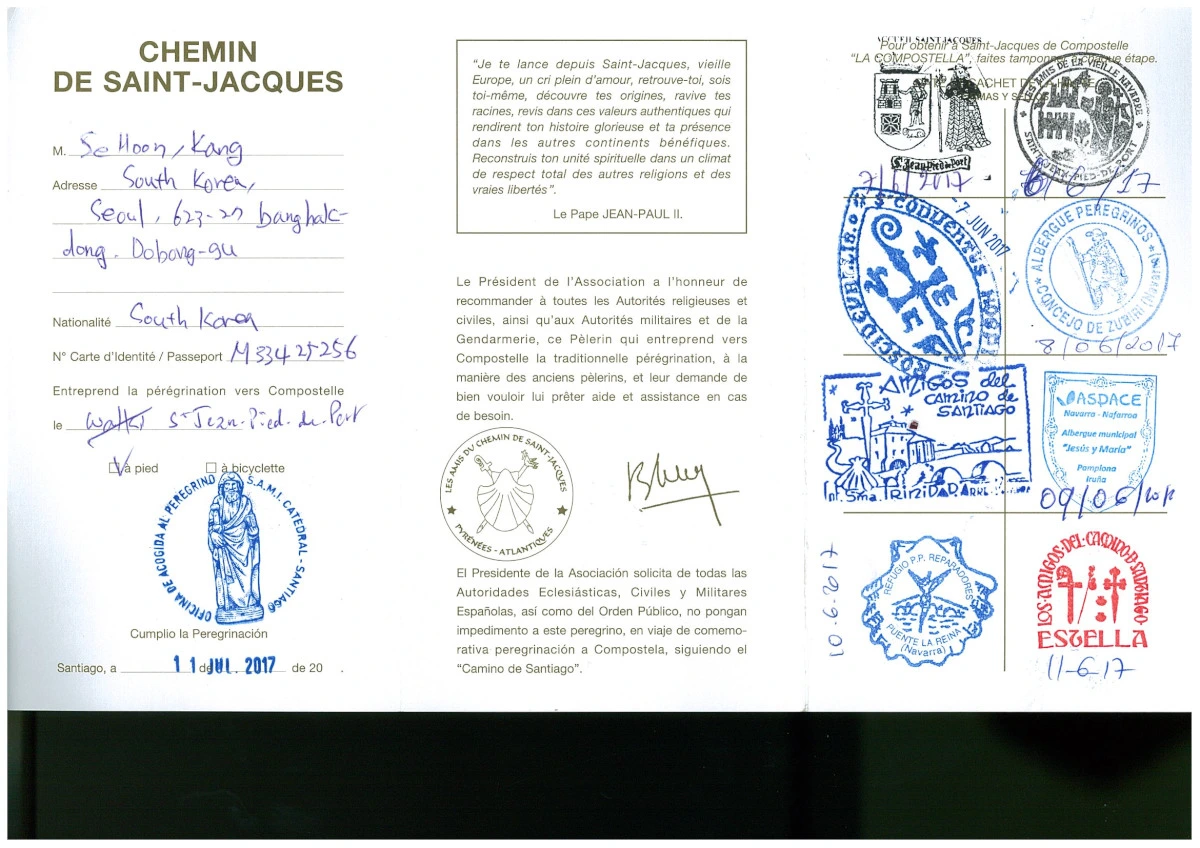 CHEMIN
DE SAINT-JACQUES
M. SeHoon, Kang
Adresse South Korea,
Seoul, 623-27 banghak-
dong. Dobong-gu
Nationalité South Korea
N° Carte d'Identité / Passeport M33425256
Entreprend la pérégrination vers Compostelle
le St Jean-Pied-de-Port
à pied à bicyclette
OFICINA DE ACOGIDA AL PEREGRINO S.A.M.I. CATEDRAL - SANTIAGO
Cumplio la Peregrinación
Santiago, a 11 de JUL. 2017 de 20 .
"Je te lance depuis Saint-Jacques, vieille
Europe, un cri plein d'amour, retrouve-toi, sois
toi-même, découvre tes origines, ravive tes
racines, revis dans ces valeurs authentiques qui
rendirent ton histoire glorieuse et ta présence
dans les autres continents bénéfiques.
Reconstruis ton unité spirituelle dans un climat
de respect total des autres religions et des
vraies libertés".
Le Pape JEAN-PAUL II.
Le Président de l'Association a l'honneur de
recommander à toutes les Autorités religieuses et
civiles, ainsi qu'aux Autorités militaires et de la
Gendarmerie, ce Pèlerin qui entreprend vers
Compostelle la traditionnelle pérégrination, à la
manière des anciens pèlerins, et leur demande de
bien vouloir lui prêter aide et assistance en cas
de besoin.
LES AMIS DU CHEMIN DE SAINT-JACQUES
PYRÉNÉES - ATLANTIQUES
El Presidente de la Asociación solicita de todas las
Autoridades Eclesiásticas, Civiles y Militares
Españolas, así como del Orden Público, no pongan
impedimento a este peregrino, en viaje de comemo-
rativa peregrinación a Compostela, siguiendo el
"Camino de Santiago".
ACCUEIL SAINT-JACQUES
Pour obtenir à Saint-Jacques de Compostelle
"LA COMPOSTELLA", faites tamponner à chaque étape.
CACHET DE LA
Y
St Jean Pied de Port
LES AMIS DE LA VIEILLE NAVARRE
SAINT-JEAN-PIED-DE-PORT
7/6/2017
6/6/17
-7 JUN 2017
ALBERGUE PEREGRINOS
CONCEJO DE ZUBIRI (Navarra)
8/06/2017
AMIGOS del
CAMINO DE
SANTIAGO
TRINIDAD
ASPACE
Navarra - Nafarroa
Albergue municipal
"Jesús y María"
Pamplona
Iruña
09/06/2017
10-6-2017
REFUGIO P.P. REPARADORES
PUENTE LA REINA
(Navarra)
LOS AMIGOS DEL CAMINO D SANTIAGO
ESTELLA
11-6-17